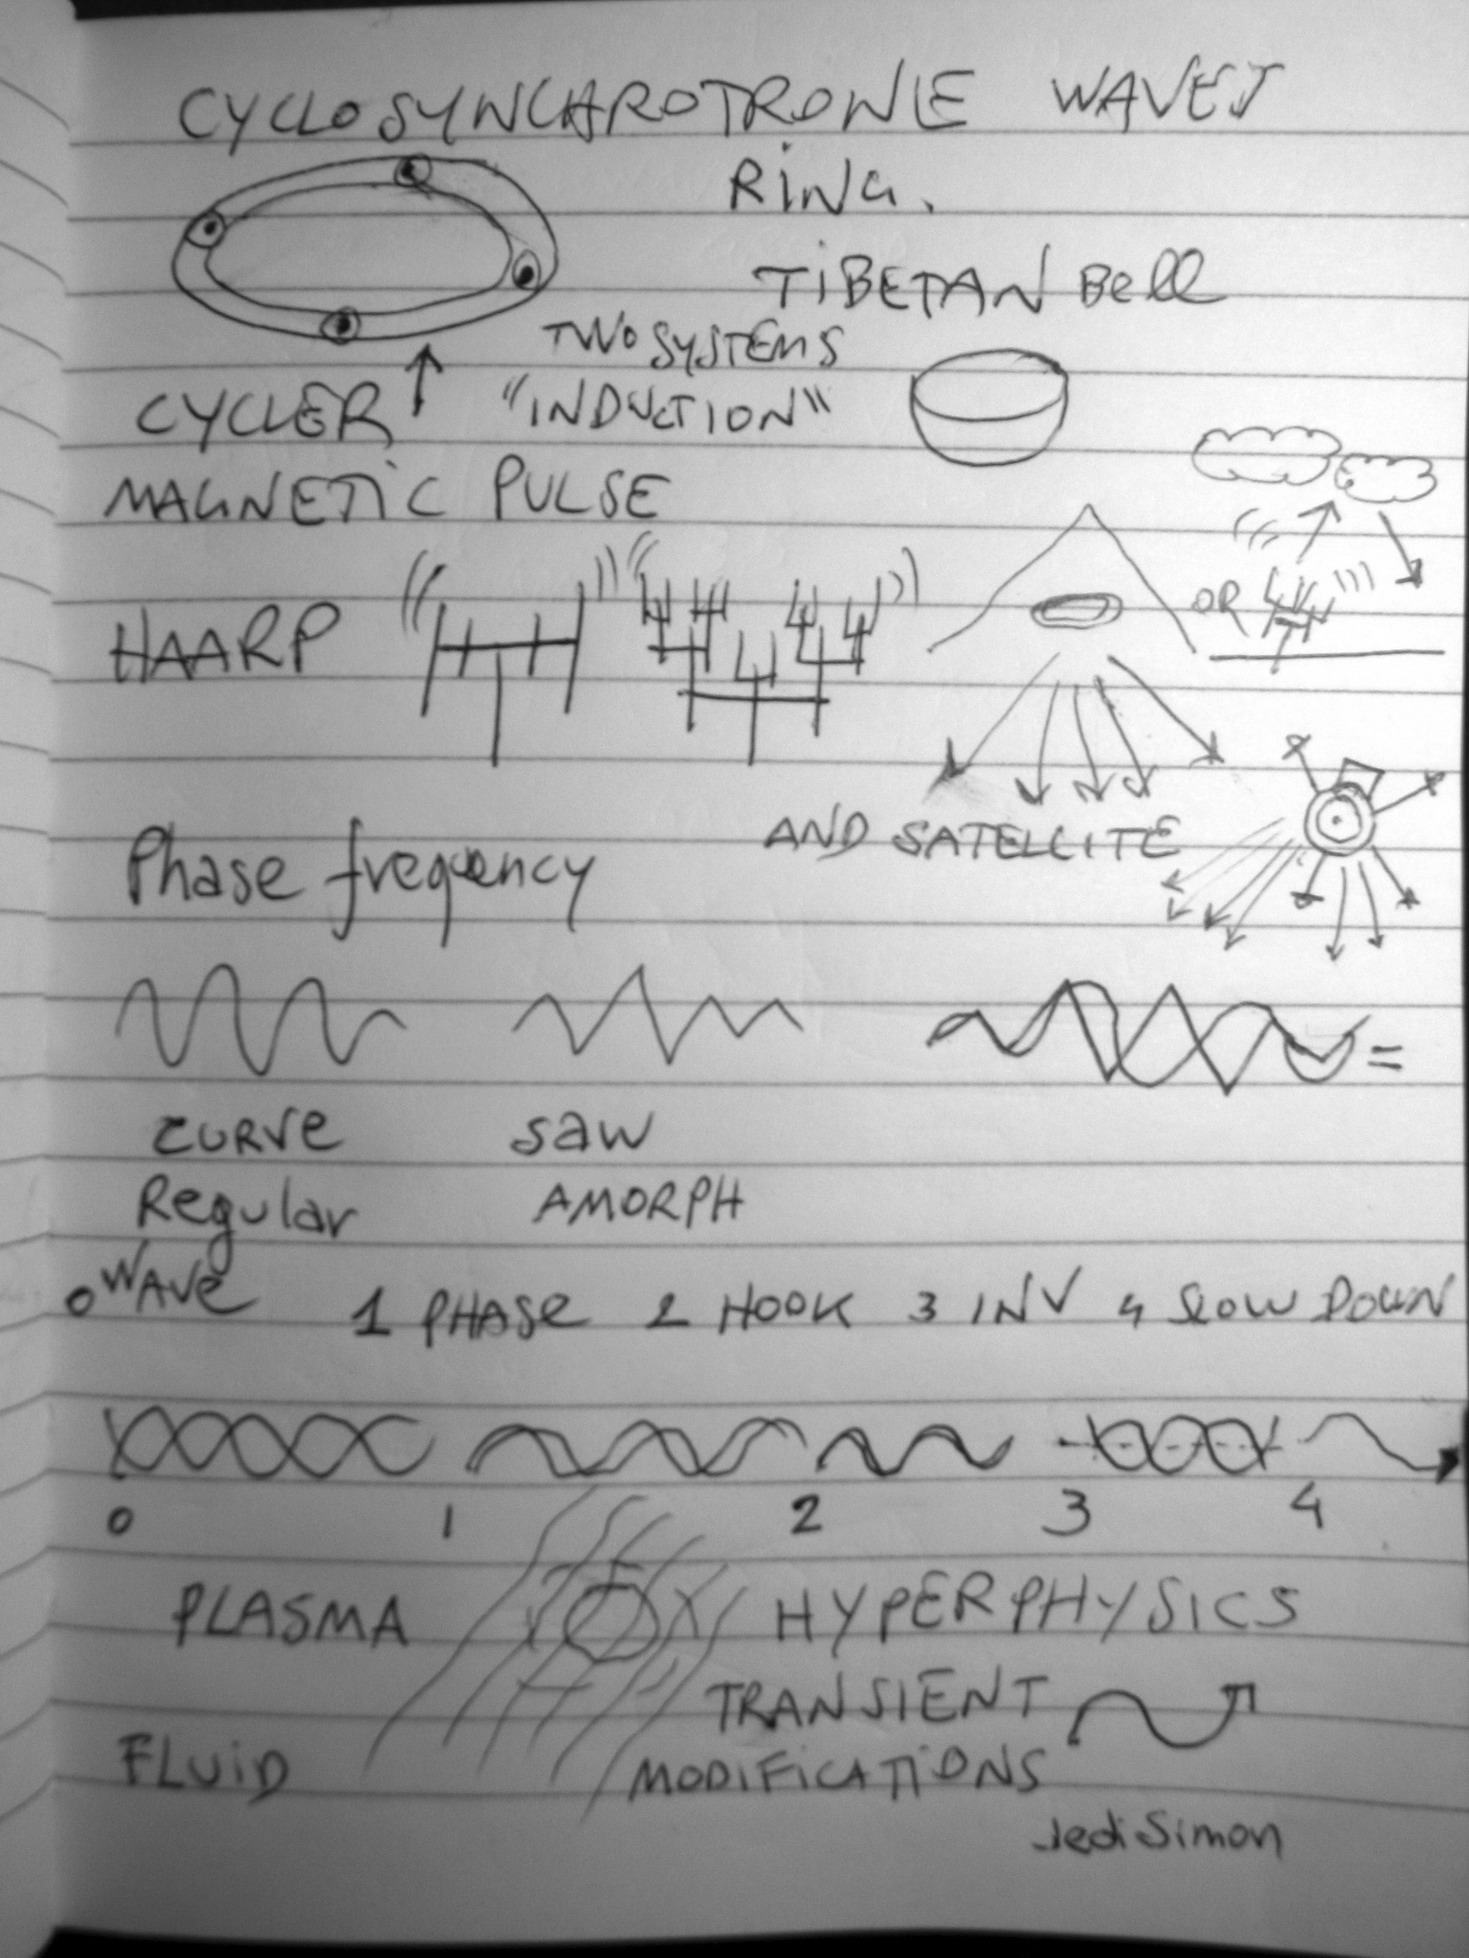 CYCLOSYNCHROTRONE WAVES
RING.
TIBETAN Bell
TWO SYSTEMS
CYCLER "INDUCTION"
MAGNETIC PULSE
HAARP
OR
AND SATELLITE
Phase frequency
=
CURVE SAW
Regular AMORPH
0 WAVE 1 PHASE 2 HOOK 3 INV 4 SLOW DOWN
0 1 2 3 4
PLASMA HYPERPHYSICS
TRANSIENT
FLUID MODIFICATIONS
Jedi Simon